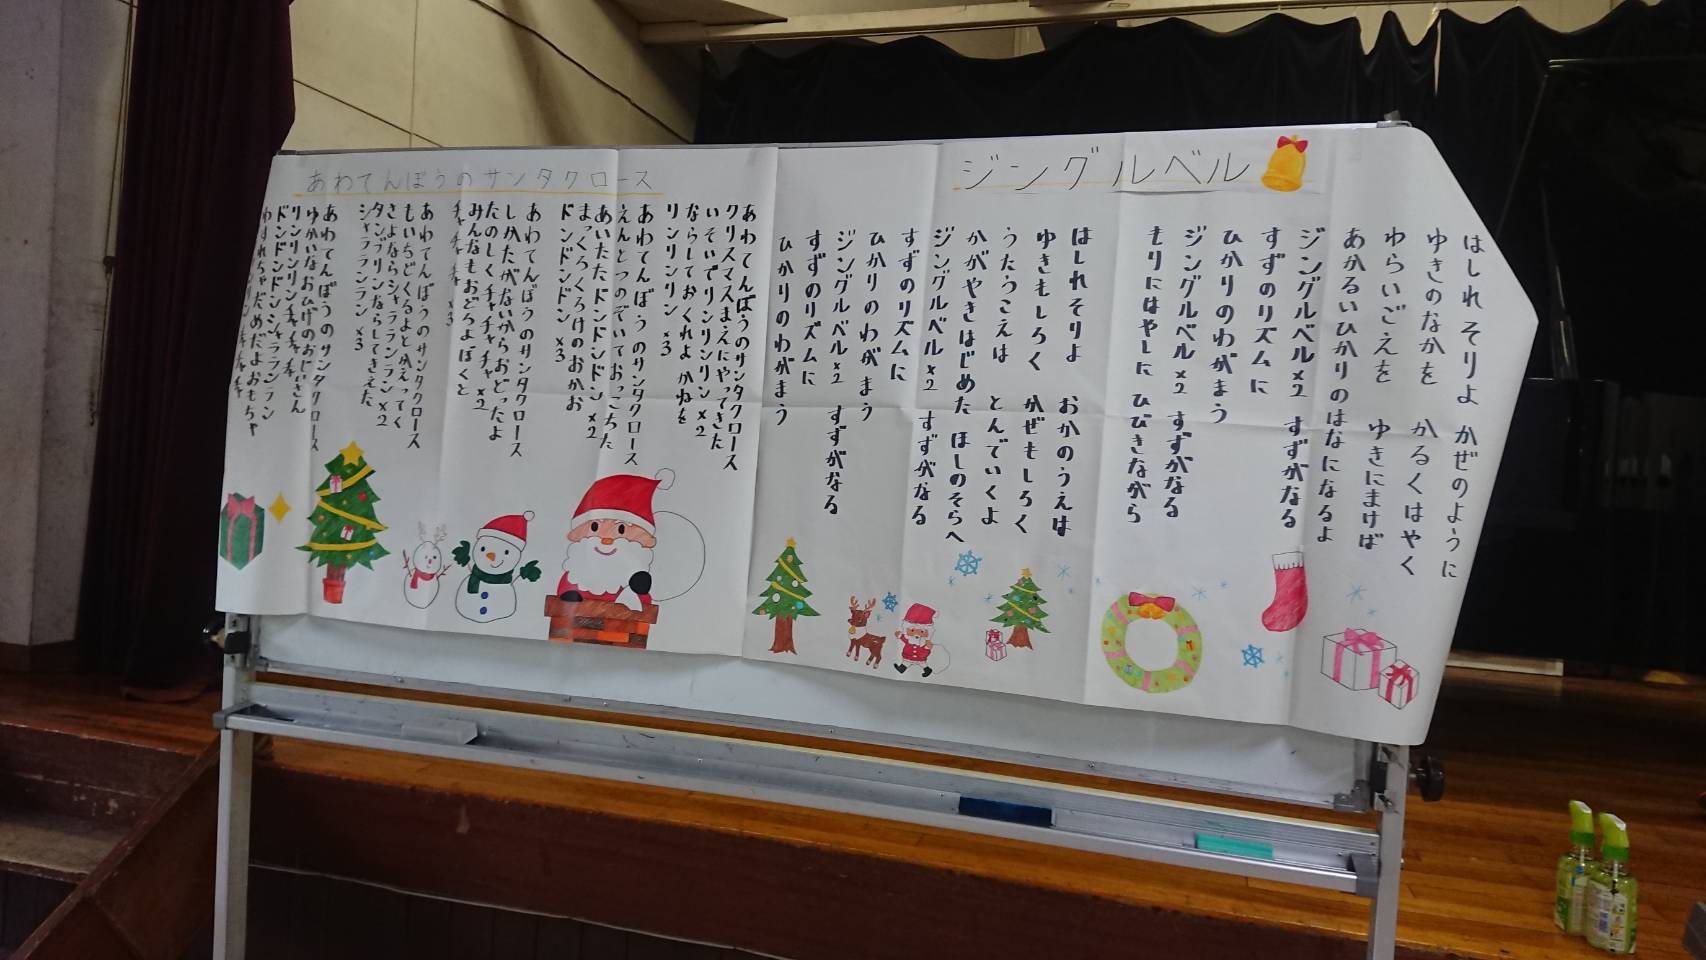 ジングルベル
はしれ そりよ かぜのように
ゆきのなかを かるくはやく
わらいごえを ゆきにまけば
あかるいひかりのはなになるよ
ジングルベル×2 すずがなる
すずのリズムに
ひかりのわがまう
ジングルベル×2 すずがなる
もりにはやしに ひびきながら
はしれそりよ おかのうえは
ゆきもしろく かぜもしろく
うたうこえは とんでいくよ
かがやきはじめた ほしのそらへ
ジングルベル×2 すずがなる
すずのリズムに
ひかりのわがまう
ジングルベル×2 すずがなる
すずのリズムに
ひかりのわがまう
あわてんぼうのサンタクロース
あわてんぼうのサンタクロース
クリスマスまえにやってきた
いそいでリンリンリン×2
ならしておくれよ かねを
リンリンリン×3
あわてんぼうのサンタクロース
えんとつのぞいておっこちた
あいたたドンドンドン×2
まっくろくろけのおかお
ドンドンドン×3
あわてんぼうのサンタクロース
しかたがないからおどったよ
たのしくチャチャチャ×2
みんなもおどろよぼくと
チャチャチャ×3
あわてんぼうのサンタクロース
もいちどくるよとかえってく
さよならシャラランラン×2
タンブリンならしてきえた
シャラランラン×3
あわてんぼうのサンタクロース
ゆかいなおひげのおじいさん
リンリンリンチャチャチャ
ドンドンドンシャラランラン
わすれちゃだめだよおもちゃ
チャチャチャ